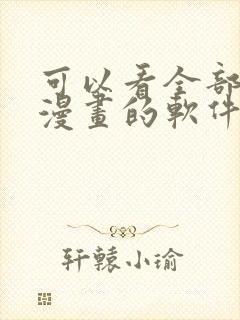 可以看全部
漫畫的軟件
轩辕小瑜